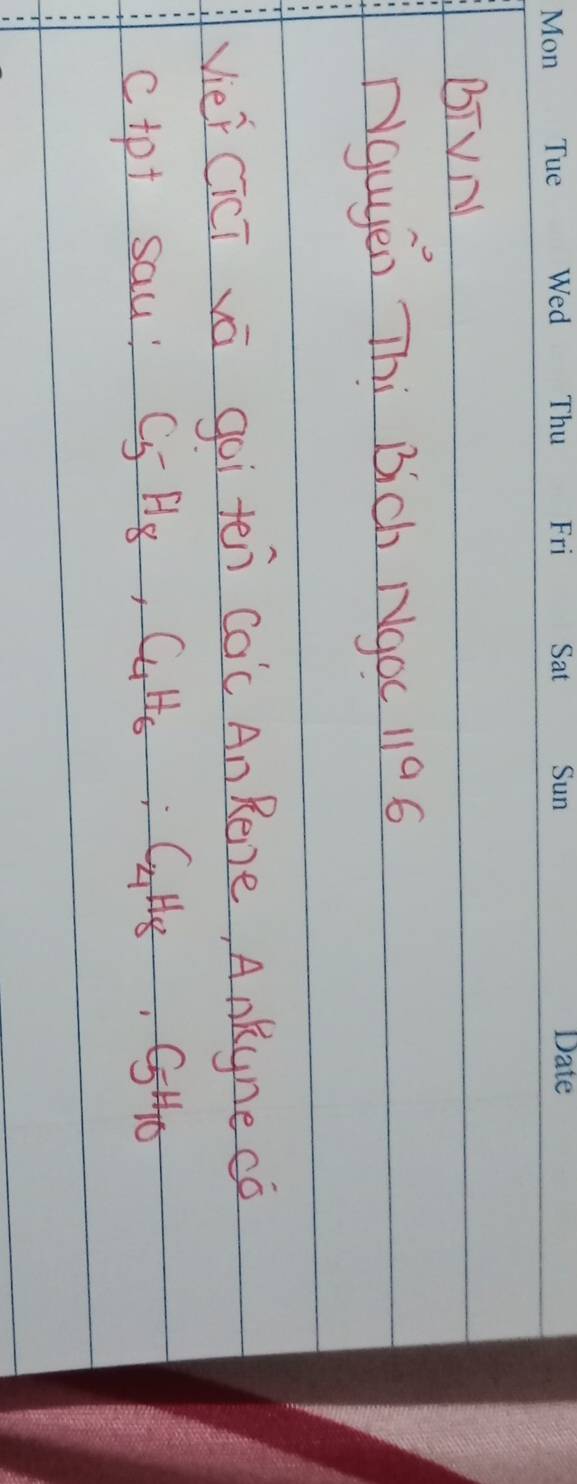 Mon Tue Wed Thu Fri Sat Sun Date
BTVN
Nguyễn Thị Bích Ngọc 11a6
Viết CTCT và gọi tên các Ankene, Ankyne có
ctpt sau: C5H8, C4H6; C4H8, C5H10